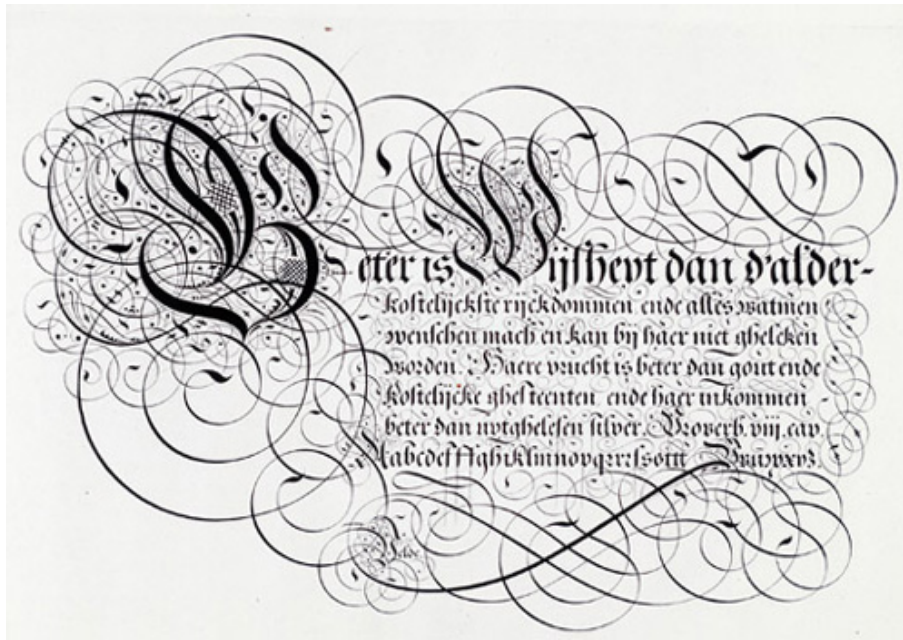 Beter is Wijsheyt dan d'alder-
kostelijckste rijckdommen ende alles watmen
wenschen mach en kan bij haer niet gheleken
worden. Haere vrucht is beter dan gout ende
kostelijcke ghesteenten ende haer inkommen
beter dan uytghelesen silver. Proverb. viij. cap.